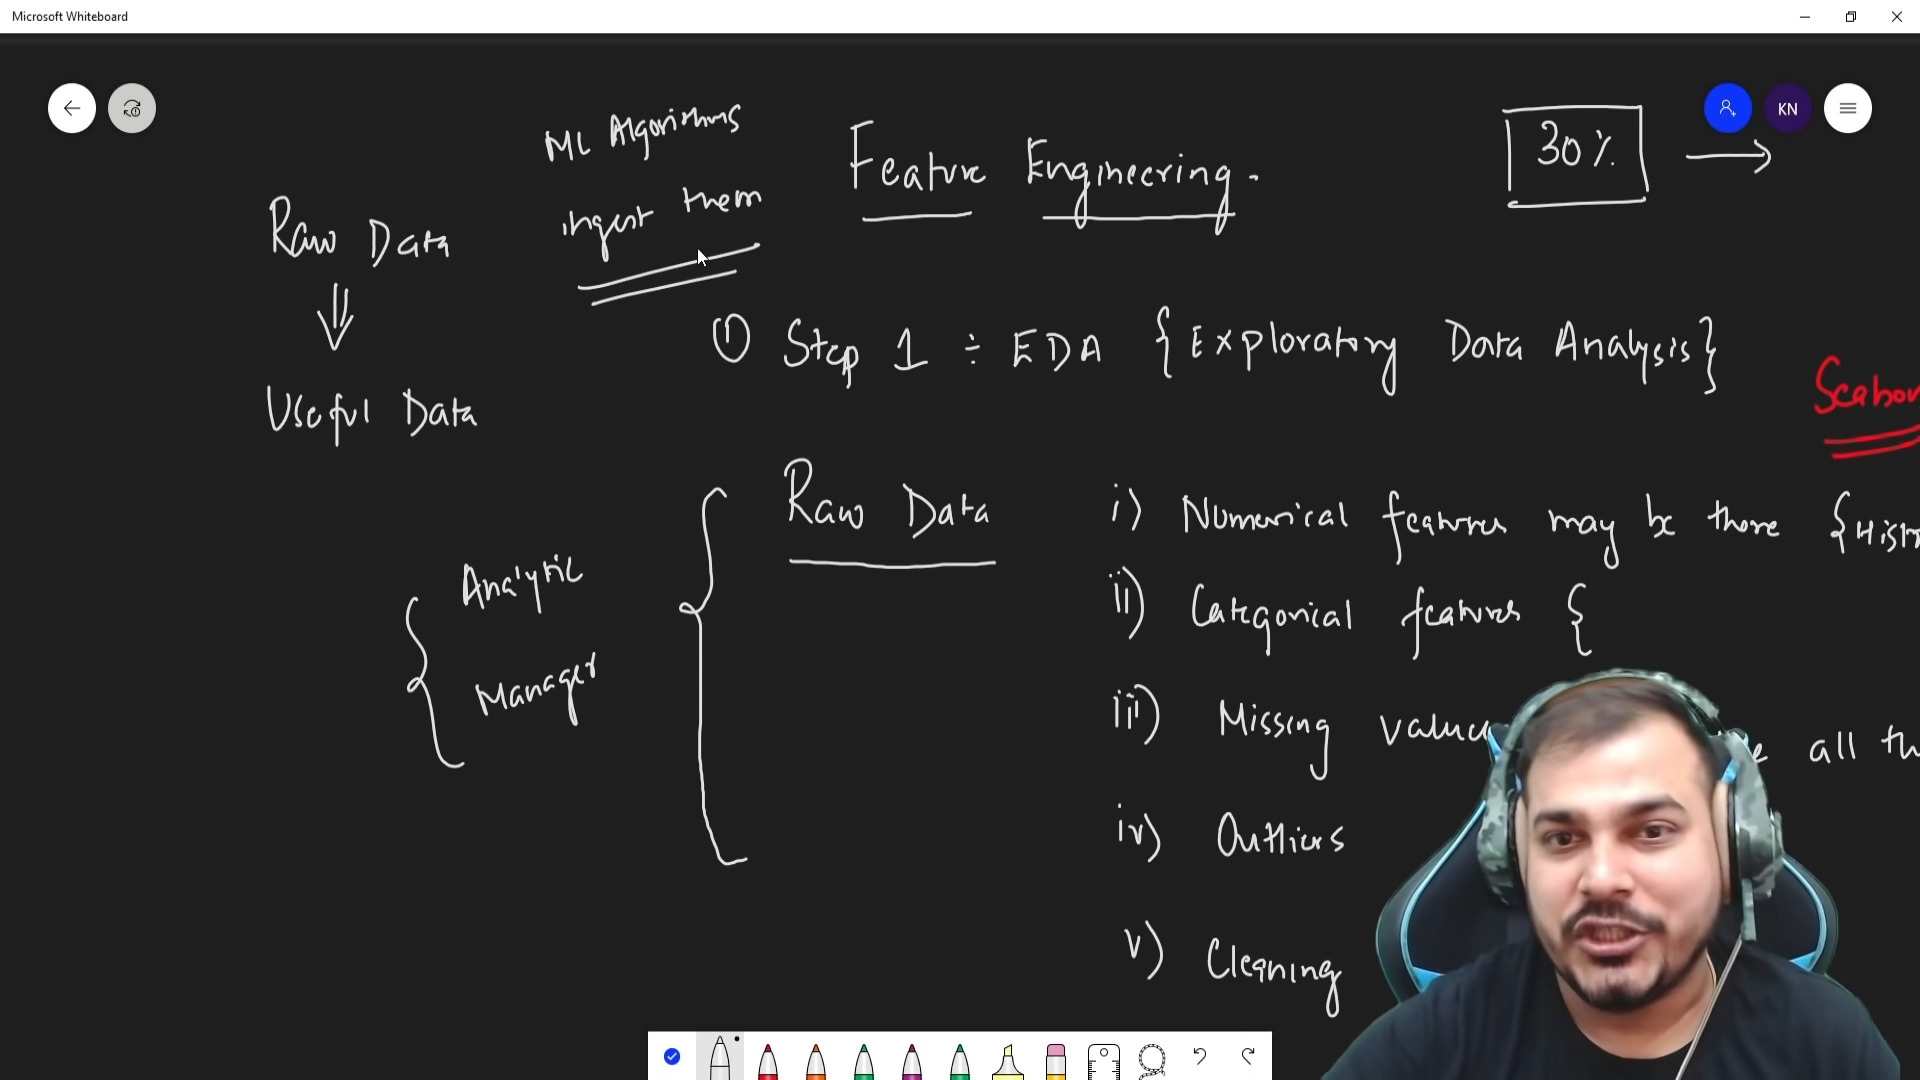 Microsoft Whiteboard
KN
ML Algorithms
ingest them
Feature Engineering.
30%
Raw Data
Useful Data
① Step 1 ÷ EDA {Exploratory Data Analysis}
Raw Data
Analytic
Manager
i) Numerical features may be there {
ii) Categorical features {
iii) Missing all
iv) Outliers
v) Cleaning